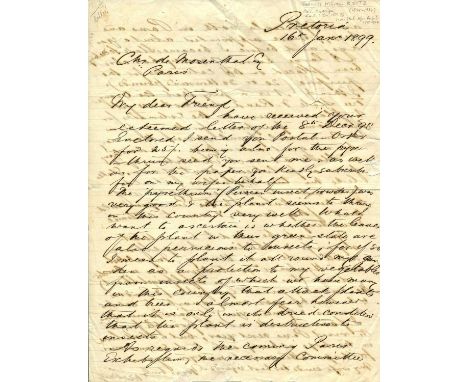 Pretoria
16th Jany 1899.
Chs de Mosenthal Esq
Paris
My dear Friend
I have received your
esteemed letter of the 8th Decr 98
Enclosed I send you Postal Order
for 25/. being also for the pyre
thrum seed you sent me, as well
as for the paper you kindly subscribe
for on my wife's behalf
The pyrethrum & Persian insect powder
very good & the plant seems to thrive
in this Country very well. What I
want to ascertain is whether the leaves
of the plant in their green state are
also pernicious to insects, for if so
I mean to plant it all round my gar
den as a protection to my vegetables
from insects of which we have many
in this country, that attack plants
and trees. I almost fear however
that it is only in its dried condition
that the plant is destructive to
insects
As regards the coming Paris
Exhibition, the necessary Committee